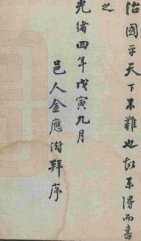 治國平天下不難也故不得而書
之
光緒四年戊寅九月
邑人金應澍拜序